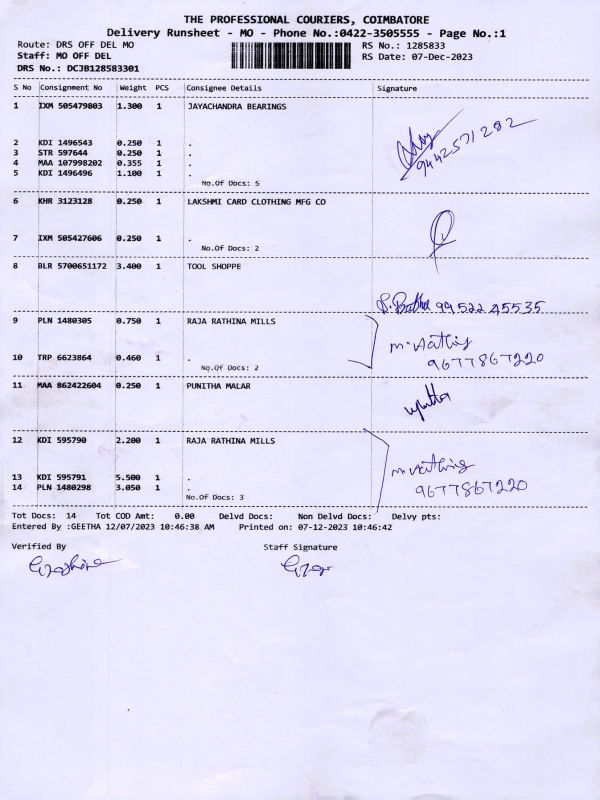 THE PROFESSIONAL COURIERS, COIMBATORE
Delivery Runsheet - MO - Phone No.:0422-3505555 - Page No.:1
Route: DRS OFF DEL MO
RS No.: 1285833
Staff: MO OFF DEL
RS Date: 07-Dec-2023
DRS No.: DCJB128583301
S No Consignment No Weight PCS Consignee Details Signature
1 IXM 505479803 1.300 1 JAYACHANDRA BEARINGS
2 KDI 1496543 0.250 1 .
3 STR 597644 0.250 1 .
4 MAA 107998202 0.355 1 .
9442571282
5 KDI 1496496 1.100 1 .
No.Of Docs: 5
6 KHR 3123128 0.250 1 LAKSHMI CARD CLOTHING MFG CO
7 IXM 505427606 0.250 1 .
No.Of Docs: 2
8 BLR 5700651172 3.400 1 TOOL SHOPPE
99522 45535
9 PLN 1480305 0.750 1 RAJA RATHINA MILLS
10 TRP 6623864 0.460 1 .
9677867220
No.Of Docs: 2
11 MAA 862422604 0.250 1 PUNITHA MALAR
12 KDI 595790 2.200 1 RAJA RATHINA MILLS
13 KDI 595791 5.500 1 .
14 PLN 1480298 3.050 1 .
9677867220
No.Of Docs: 3
Tot Docs: 14 Tot COD Amt: 0.00 Delvd Docs: Non Delvd Docs: Delvy pts:
Entered By :GEETHA 12/07/2023 10:46:38 AM Printed on: 07-12-2023 10:46:42
Verified By Staff Signature